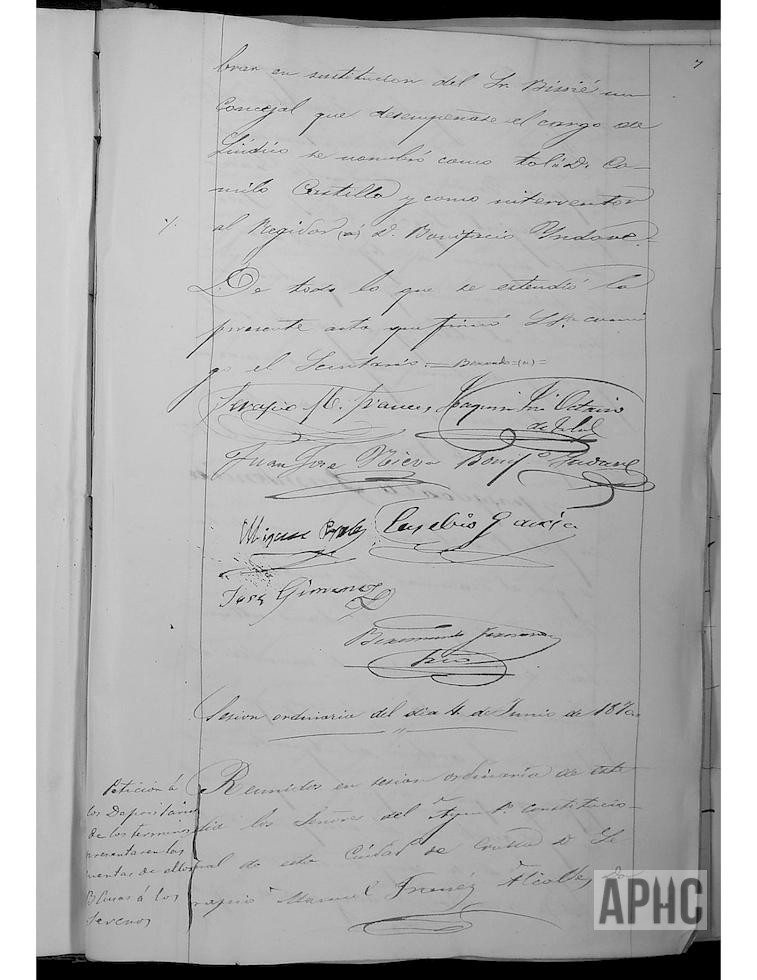 7
brar en sustitucion del Sr. Bissié un
Concejal que desempeñase el cargo de
Síndico se nombró como tal á D. Ca-
milo Castilla y como interventor
al Regidor (a) D. Bonifacio Yndave.
De todo lo que se estendió la
presente acta que firmó S.Sª conmi
go el Secretario.
Joaquin
Juan Jose Bonifº Yndave
Miguel Eusebio Garcia
Jose Gimenez
Sesion ordinaria del dia 4 de Junio de 187
Petición á
los Depositarios
de los terminos
presentasen las
cuentas de ellos
Blusas á los
Serenos
Reunidos en sesion ordinaria de este
dia los Señores del Ayunt.º constitucio-
nal de esta Ciudad de D Se
rapio Manuel Alcalde, Dn
APHC